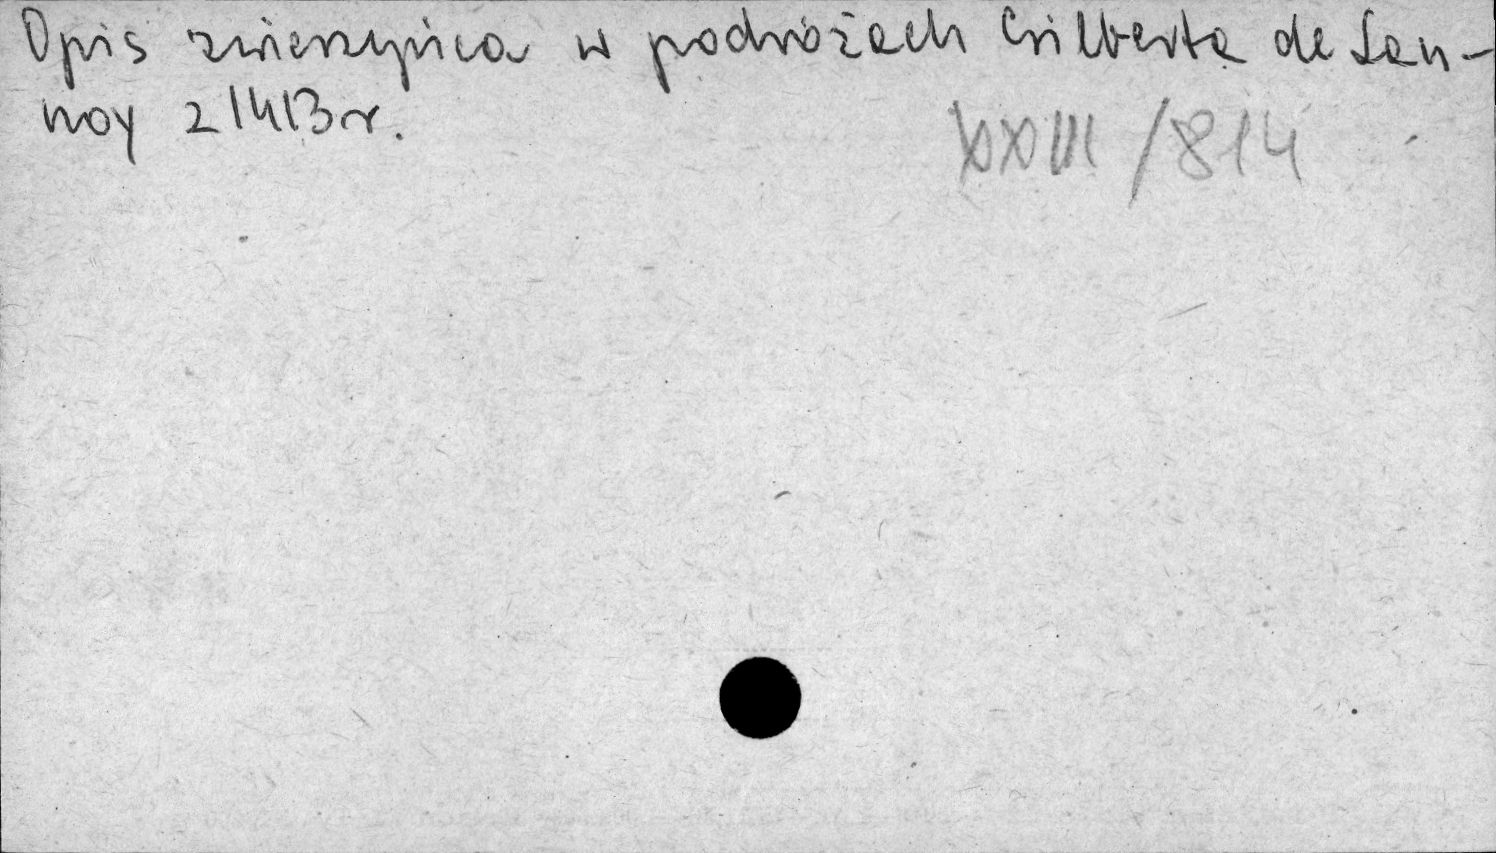 Opis zwierzyńca w podróżach Gilberta de Lan-
noy z 1413 r.
XXIII / 814